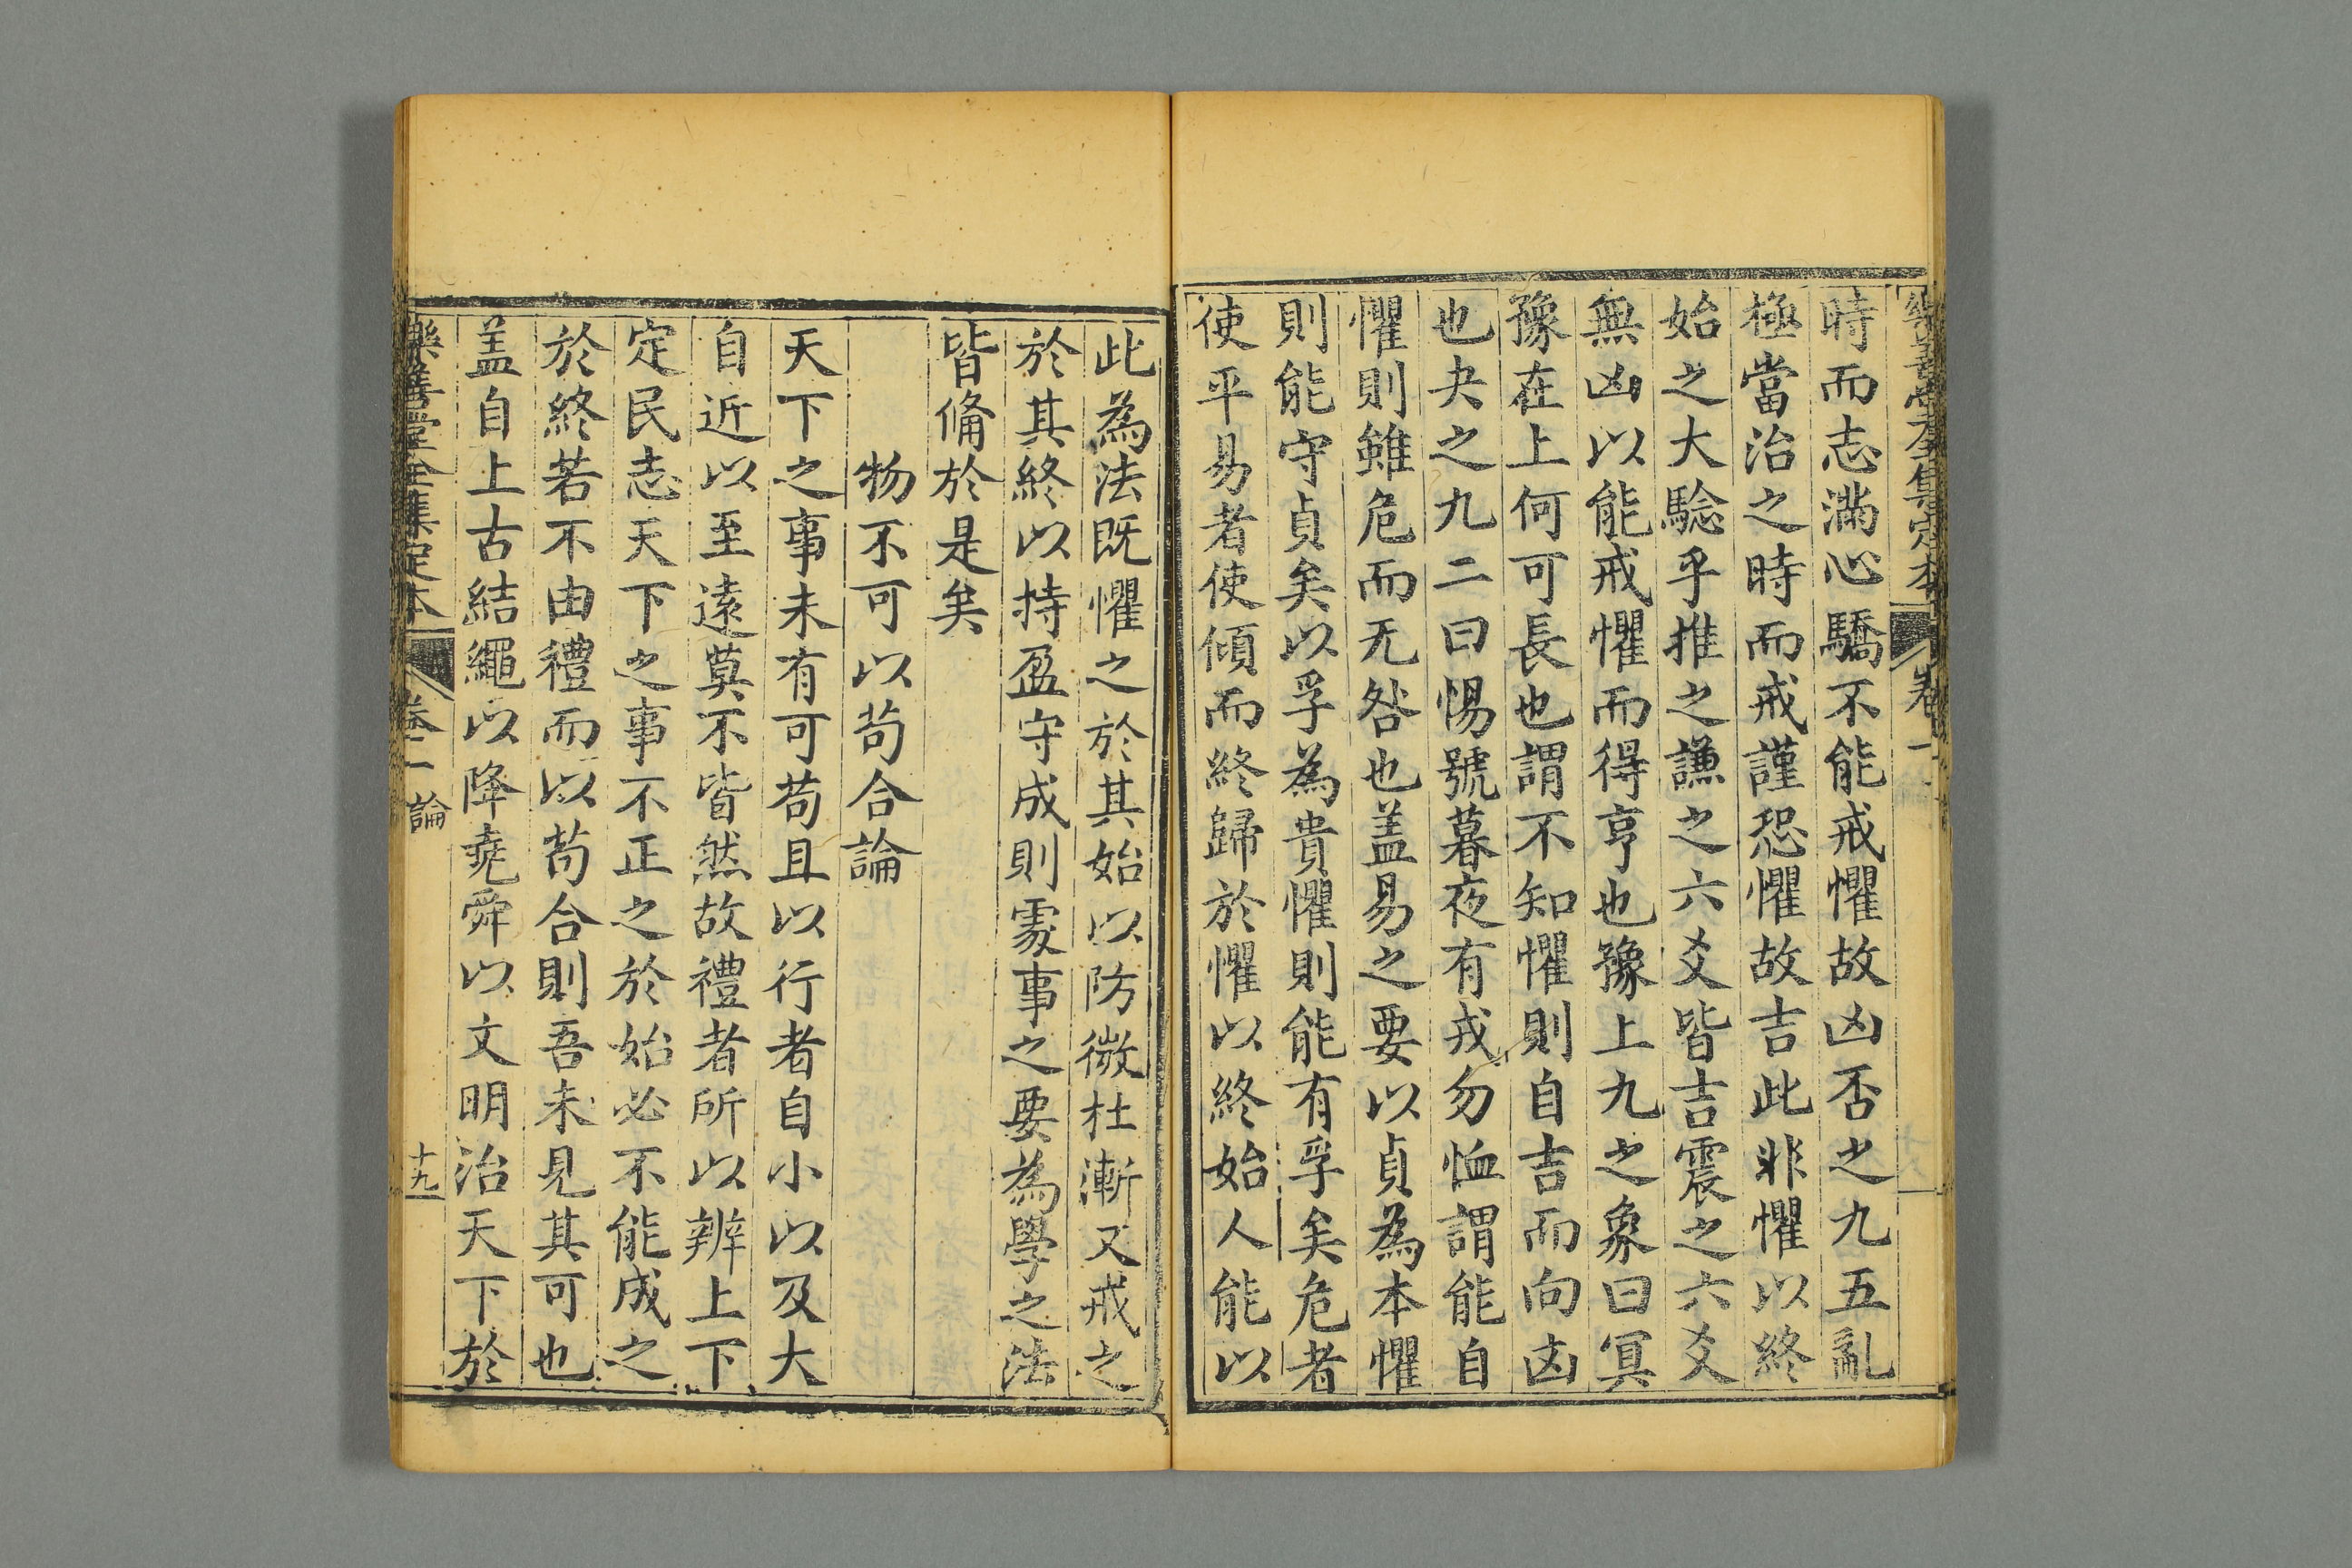 時而志滿心驕不能戒懼故凶否之九五亂
極當治之時而戒謹恐懼故吉此非懼以終
始之大騐乎推之謙之六爻皆吉震之六爻
無凶以能戒懼而得亨也豫上九之象曰冥
豫在上何可長也謂不知懼則自吉而向凶
也夬之九二曰惕號暮夜有戎勿恤謂能自
懼則雖危而无咎也盖易之要以貞為本懼
則能守貞矣以孚為貴懼則能有孚矣危者
使平易者使傾而終歸於懼以終始人能以
此為法既懼之於其始以防微杜漸又戒之
於其終以持盈守成則處事之要為學之法
皆俻於是矣
物不可以苟合論
天下之事未有可苟且以行者自小以及大
自近以至遠莫不皆然故禮者所以辨上下
定民志天下之事不正之於始必不能成之
於終若不由禮而以苟合則吾未見其可也
盖自上古結繩以降堯舜以文明治天下於
樂善堂全集定本 卷一 論 十九